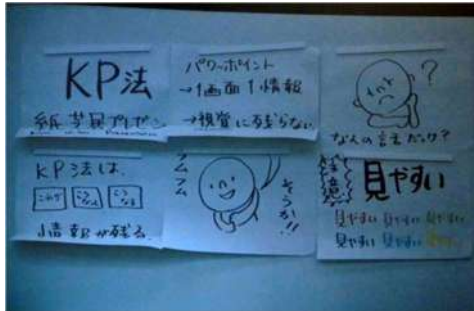 KP法
紙芝居プレゼン
パワーポイント
→1画面1情報
→視覚に残らない
?
なんの話だっけ?
KP法は、
これが こうなって こうなる
情報が残る。
フムフム
そうか!!
注意
見やすい
見やすい 見やすい 見やすい
見やすい 見やすい